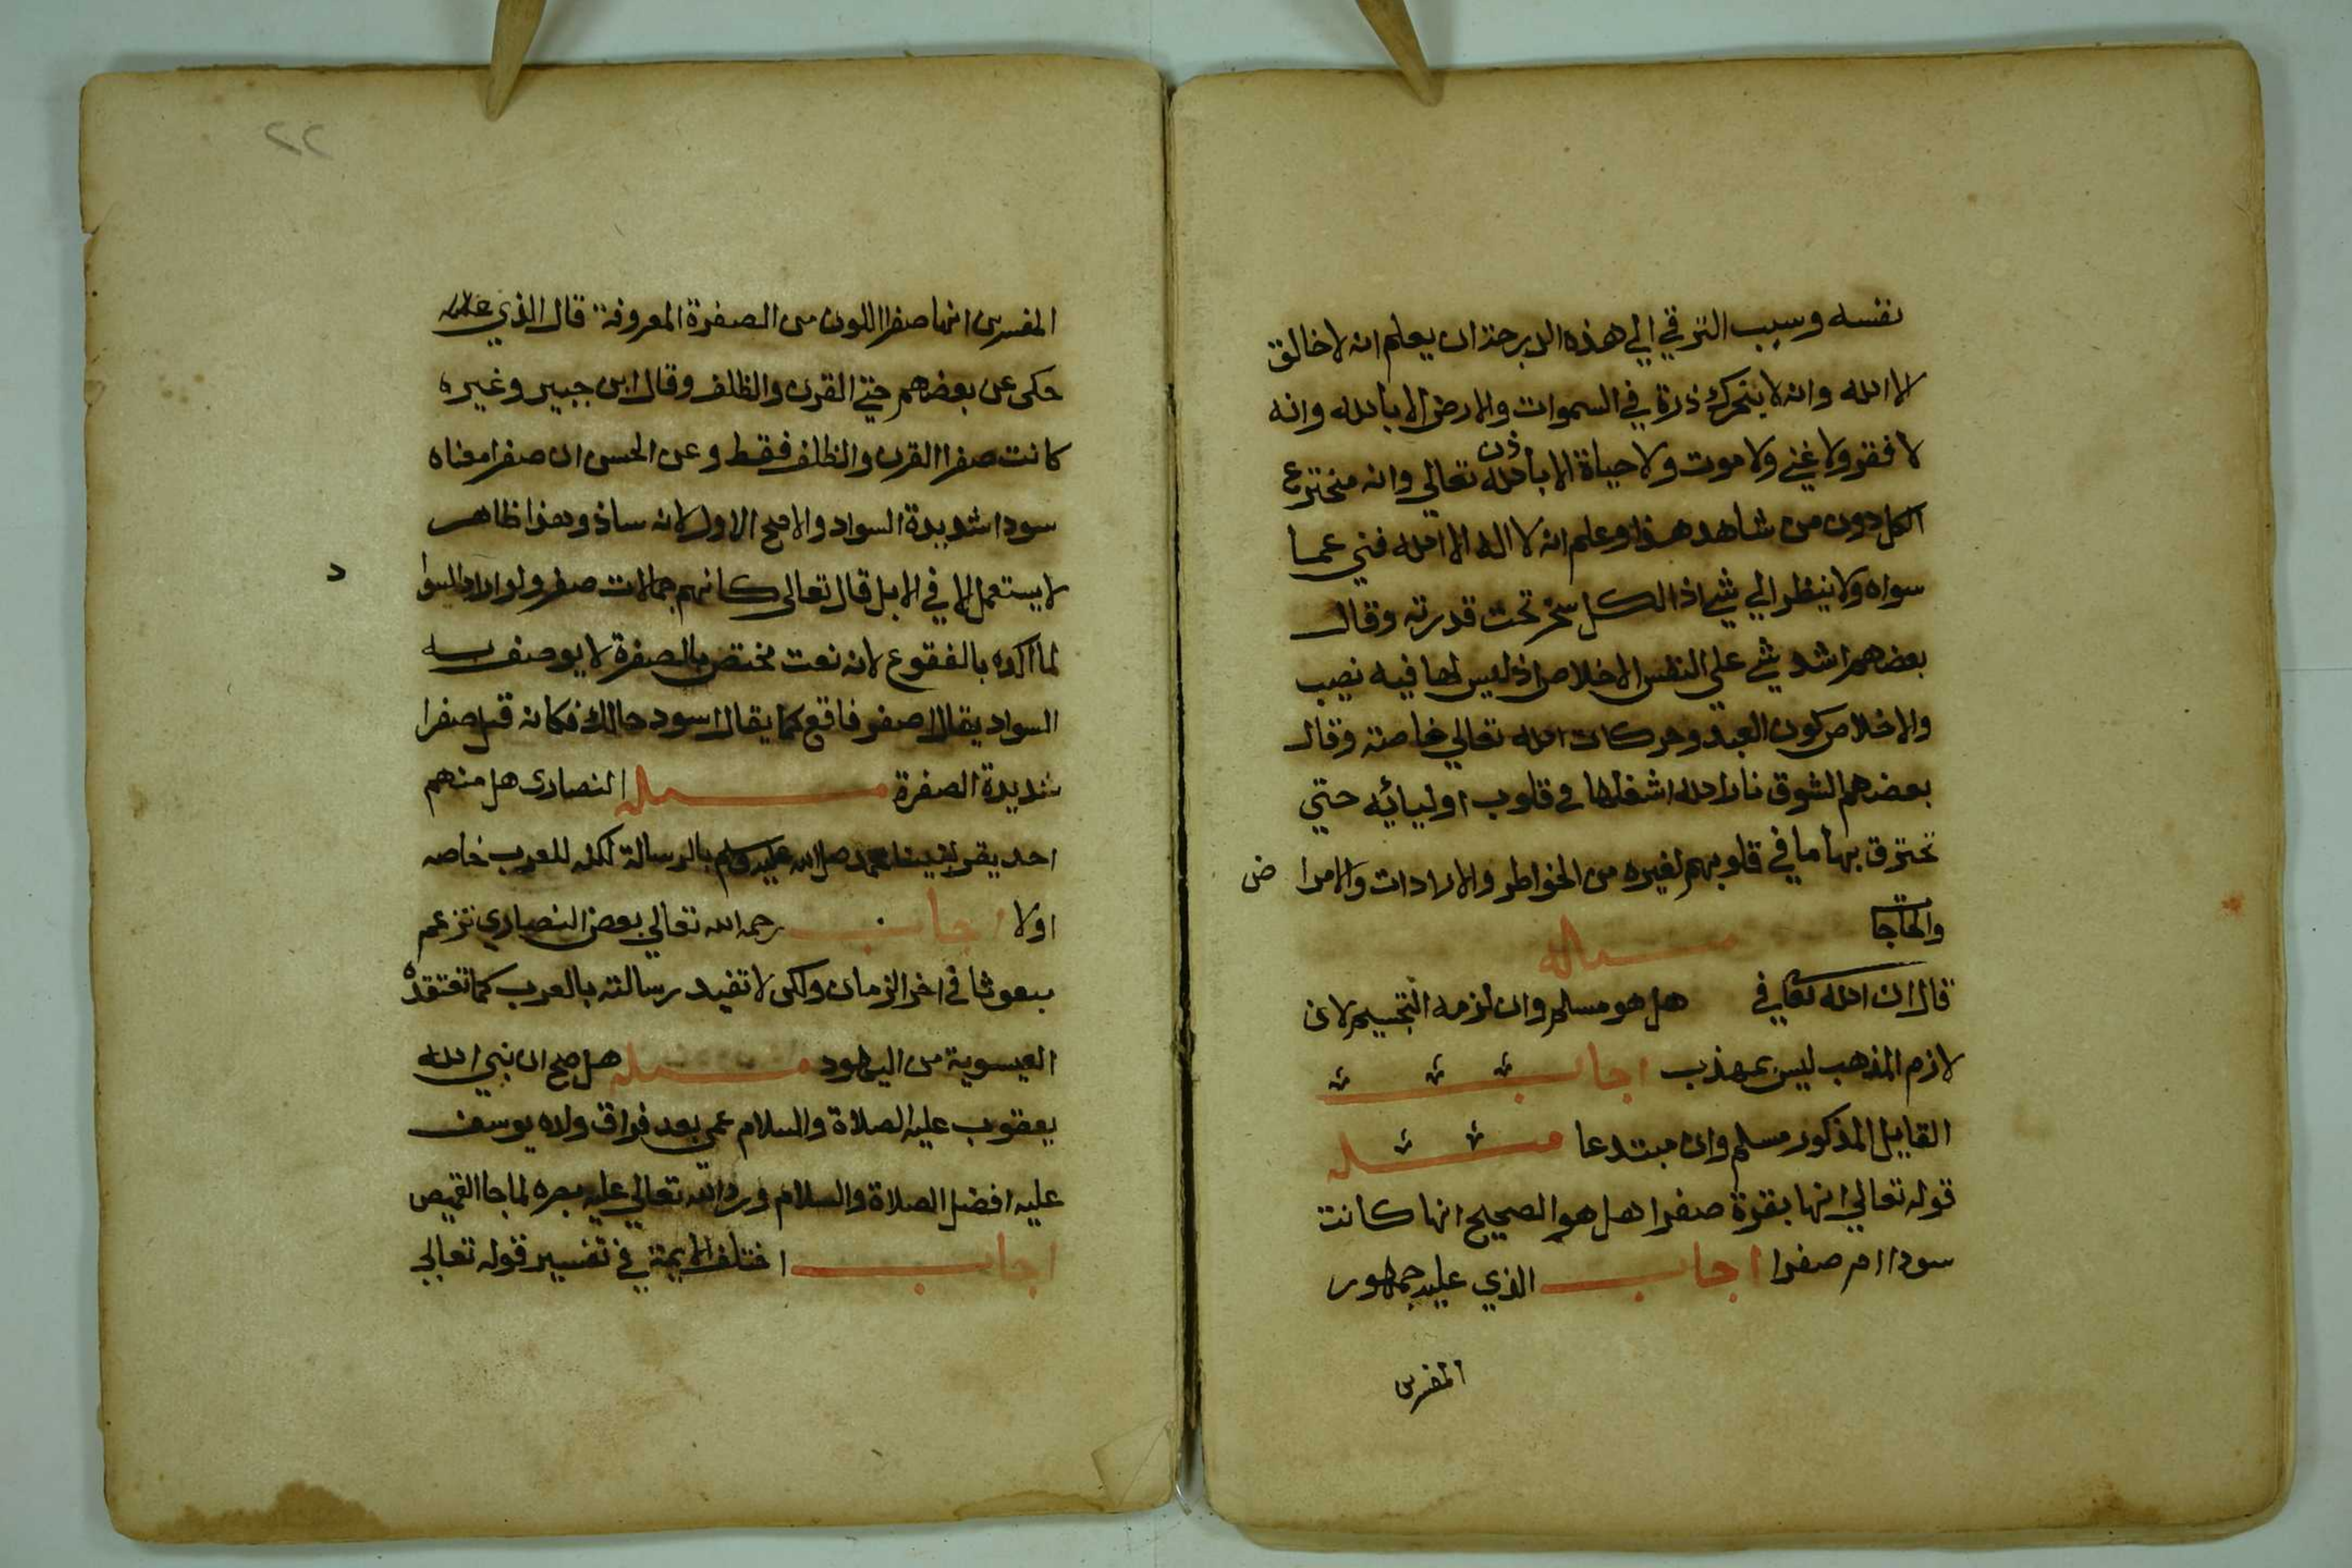 نفسه وسبب الترقي الي هذه الدرجة ان يعلم انه لا خالق
الا الله وانه لا يتحرك ذرة في السموات والارض الا بالله وانه
لا فقر ولا غني ولا موت ولا حياة الا باذن الله تعالي وانه مخترع
الكل دون من شاهد هذا وعلم ان لا اله الا الله فني عما
سواه ولا ينظر الي شي اذ الكل سخر تحت قدرته وقال
بعضهم اشد شي علي النفس الاخلاص اذ ليس لها فيه نصيب
والاخلاص كون العبد وحركات الله تعالي خاصة وقال
بعضهم الشوق نار الله اشغلها في قلوب اوليائه حتي
تحترق بها ما في قلوبهم لغيره من الخواطر والارادات والامرا ض
والحاجات
مسئلة
قال ان الله تعالي في هل هو مسلم وان لزمه التجسيم لان
لازم المذهب ليس بمهذب اجاب
القايل المذكور مسلم وان مبتدعا مسئلة
قوله تعالي انها بقرة صفرا هل هو الصحيح انها كانت
سودا ام صفرا اجاب الذي عليه جمهور
المفسرين
٢٢
المفسرين انها صفرا اللون من الصفرة المعروفة قال الذي
حكي عن بعضهم حتي القرن والظلف وقال ابن جبير وغيره
كانت صفرا القرن والظلف فقط وعن الحسن ان صفرا معناه
سودا شديدة السواد والاصح الاول لانه ساذ وهذا ظاهر
لا يستعمل الا في الابل قال تعالى كانهم جمالات صفر ولو اراد السوا د
لما اكده بالفقوع لانه نعت مختص بالصفرة لا يوصف به
السواد يقال اصفر فاقع كما يقال اسود حالك فكانه قيل صفرا
شديدة الصفرة مسئلة النصارى هل منهم
احد يقر لنبينا محمد صلي الله عليه وسلم بالرسالة لكنه للعرب خاصه
اولا اجاب رحمه الله تعالي بعض النصارى تزعم
ببعوثا في اخر الزمان ولكن لا تفيد رسالته بالعرب كما تعتقده
العيسوية من اليهود مسئلة هل صح ان نبي الله
يعقوب عليه الصلاة والسلام عمي بعد فراق ولاه يوسف
عليه افضل الصلاة والسلام ورد الله تعالي عليه بصره لما جا القميص
اجاب اختلف الايمة في تفسير قوله تعالي